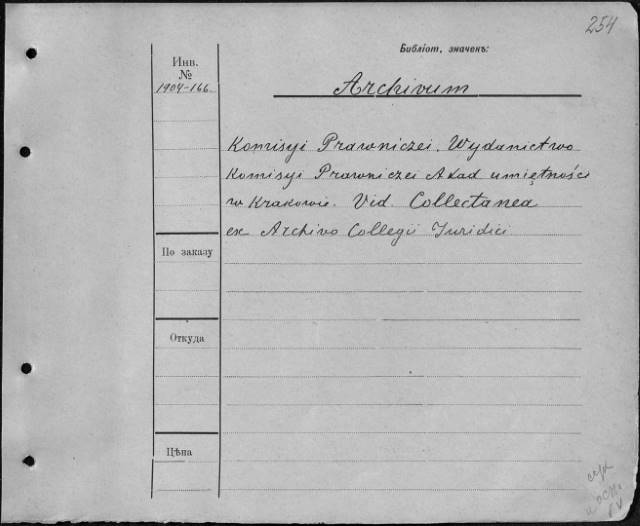 254
Библіот, значекъ:
Инв.
№
1904-166.
Archivum
Komisyi Prawniczei. Wydanictwo
Komisyi Prawniczei Akad umiętności
w Krakowie. Vid. Collectanea
ex Archivo Collegii Iuridici
По заказу
Откуда
Цѣна